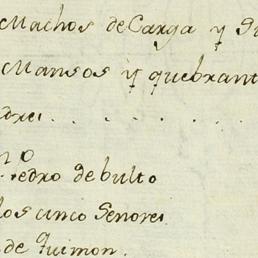 Machos de Carga y
Mansos y quebrant
. . . . . .
no
Pedro de bulto
los cinco Señores
de Quimon.